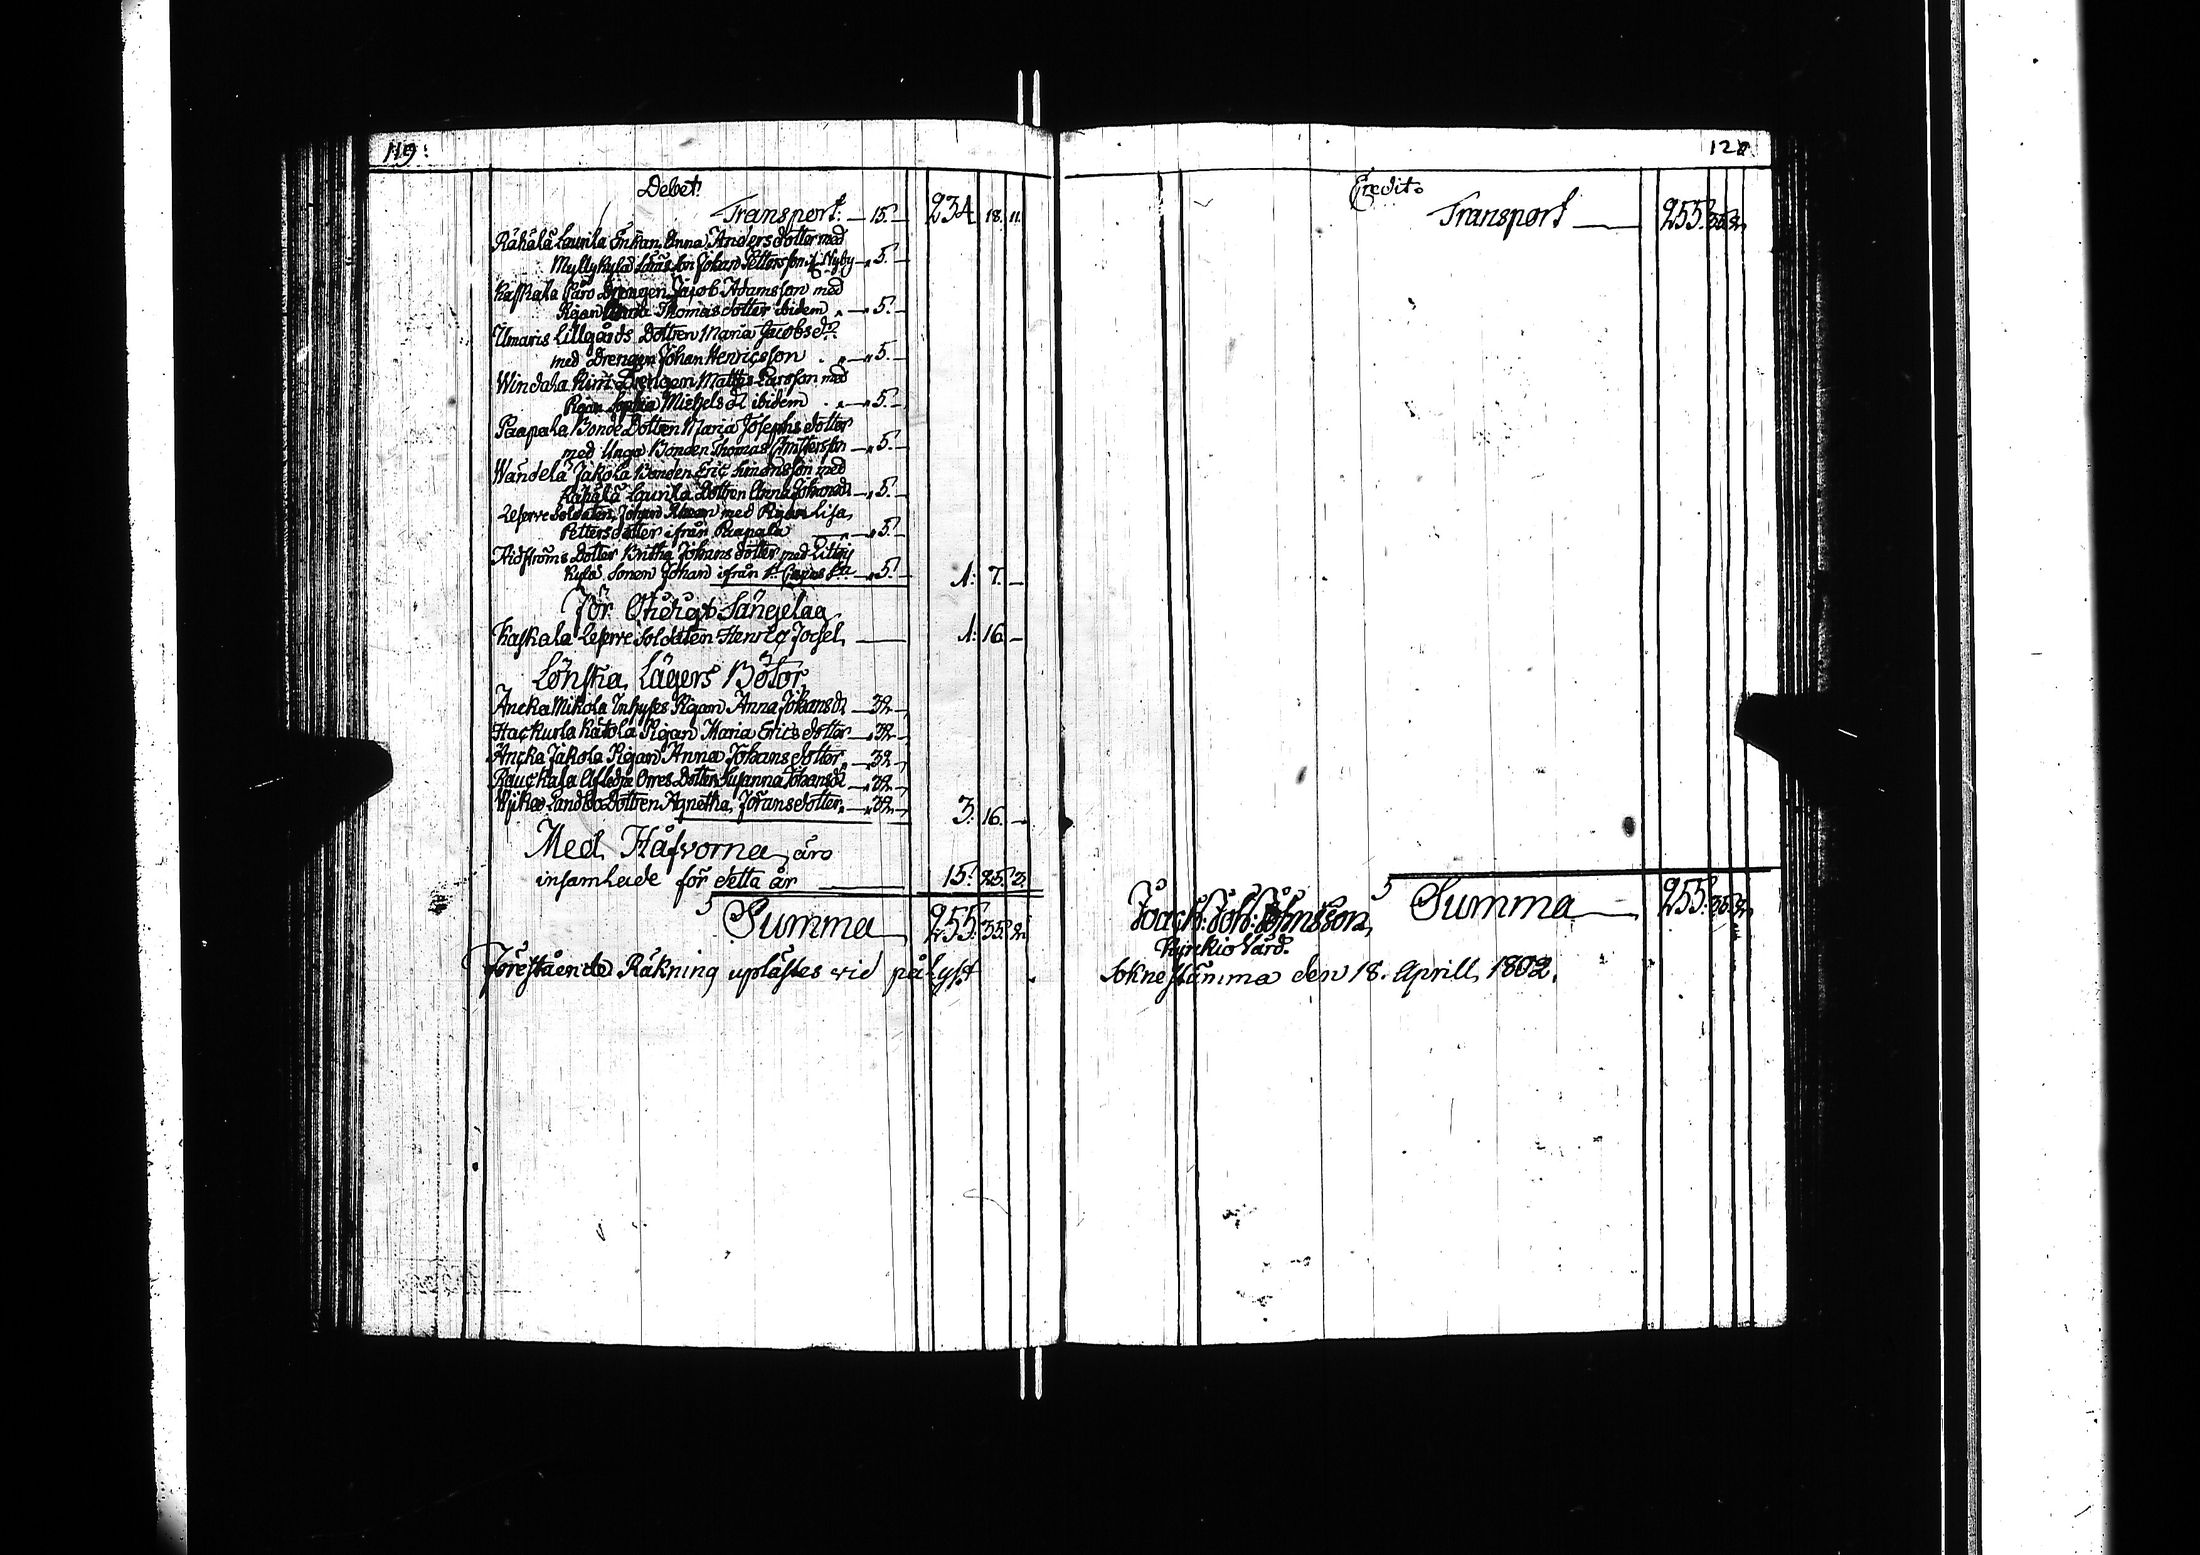 119:
Debet.
Transport. — 15. — 234 18. 11.
Rähälä Laurila Enkan Anna Andersdotter med
Myllykylä Johan Pettersson Nyby — 5. —
Kaskala Päro Drengen Jacob Adamsson med
Pigan Thomasdotter ibidem — 5. —
Umaris Lillgårds Dottren Maria Jacobs dr.
med Drengen Johan Henricsson — 5. —
Windala Drengen Matts Larsson med
Pigan Sophia Michels dr ibidem — 5. —
Paapala Bonde Dottren Maria Josephs dotter
med Unga Bonden Thomas — 5. —
Wändelä Jakola Bonden Eric Simonsson med
Rähälä Laurila Dottren Anna Johansdr — 5. —
Reserve Soldaten Johan med Pigan Lisa
Pettersdotter ifrån Paapala — 5. —
Dotter Britha Johans dotter med
Kylä Sonen Johan ifrån — 5. — 1: 7. —
För Sängelag
Kaskala Reserve Soldaten Henric — 1: 16. —
Lönska Lägers Böter
Ancka Mikola Inhyses Pigan Anna Johansdr — 32 —
Hackurla Rätola Pigan Maria Ericsdotter — 32 —
Äncka Jakola Pigan Anna Johansdotter — 32 —
Rauckala Afledne Orres Dotter Susanna Johansdr — 32 —
Wijka Landbo Dottren Agnetha Johansdotter — 32 — 3. 16. —
Med Håfvorna äro
insamlade för detta år — 15. 25. 3.
Summa 255. 35. 2.
Förestående Räkning uplästes wid pålyst
120.
Credit.
Transport — 255. 35. 2.
Summa — 255. 35. 2.
Joach: Joh: Johnsson
Kyrckio Värd.
Sokne stämma den 18. Aprill 1802.